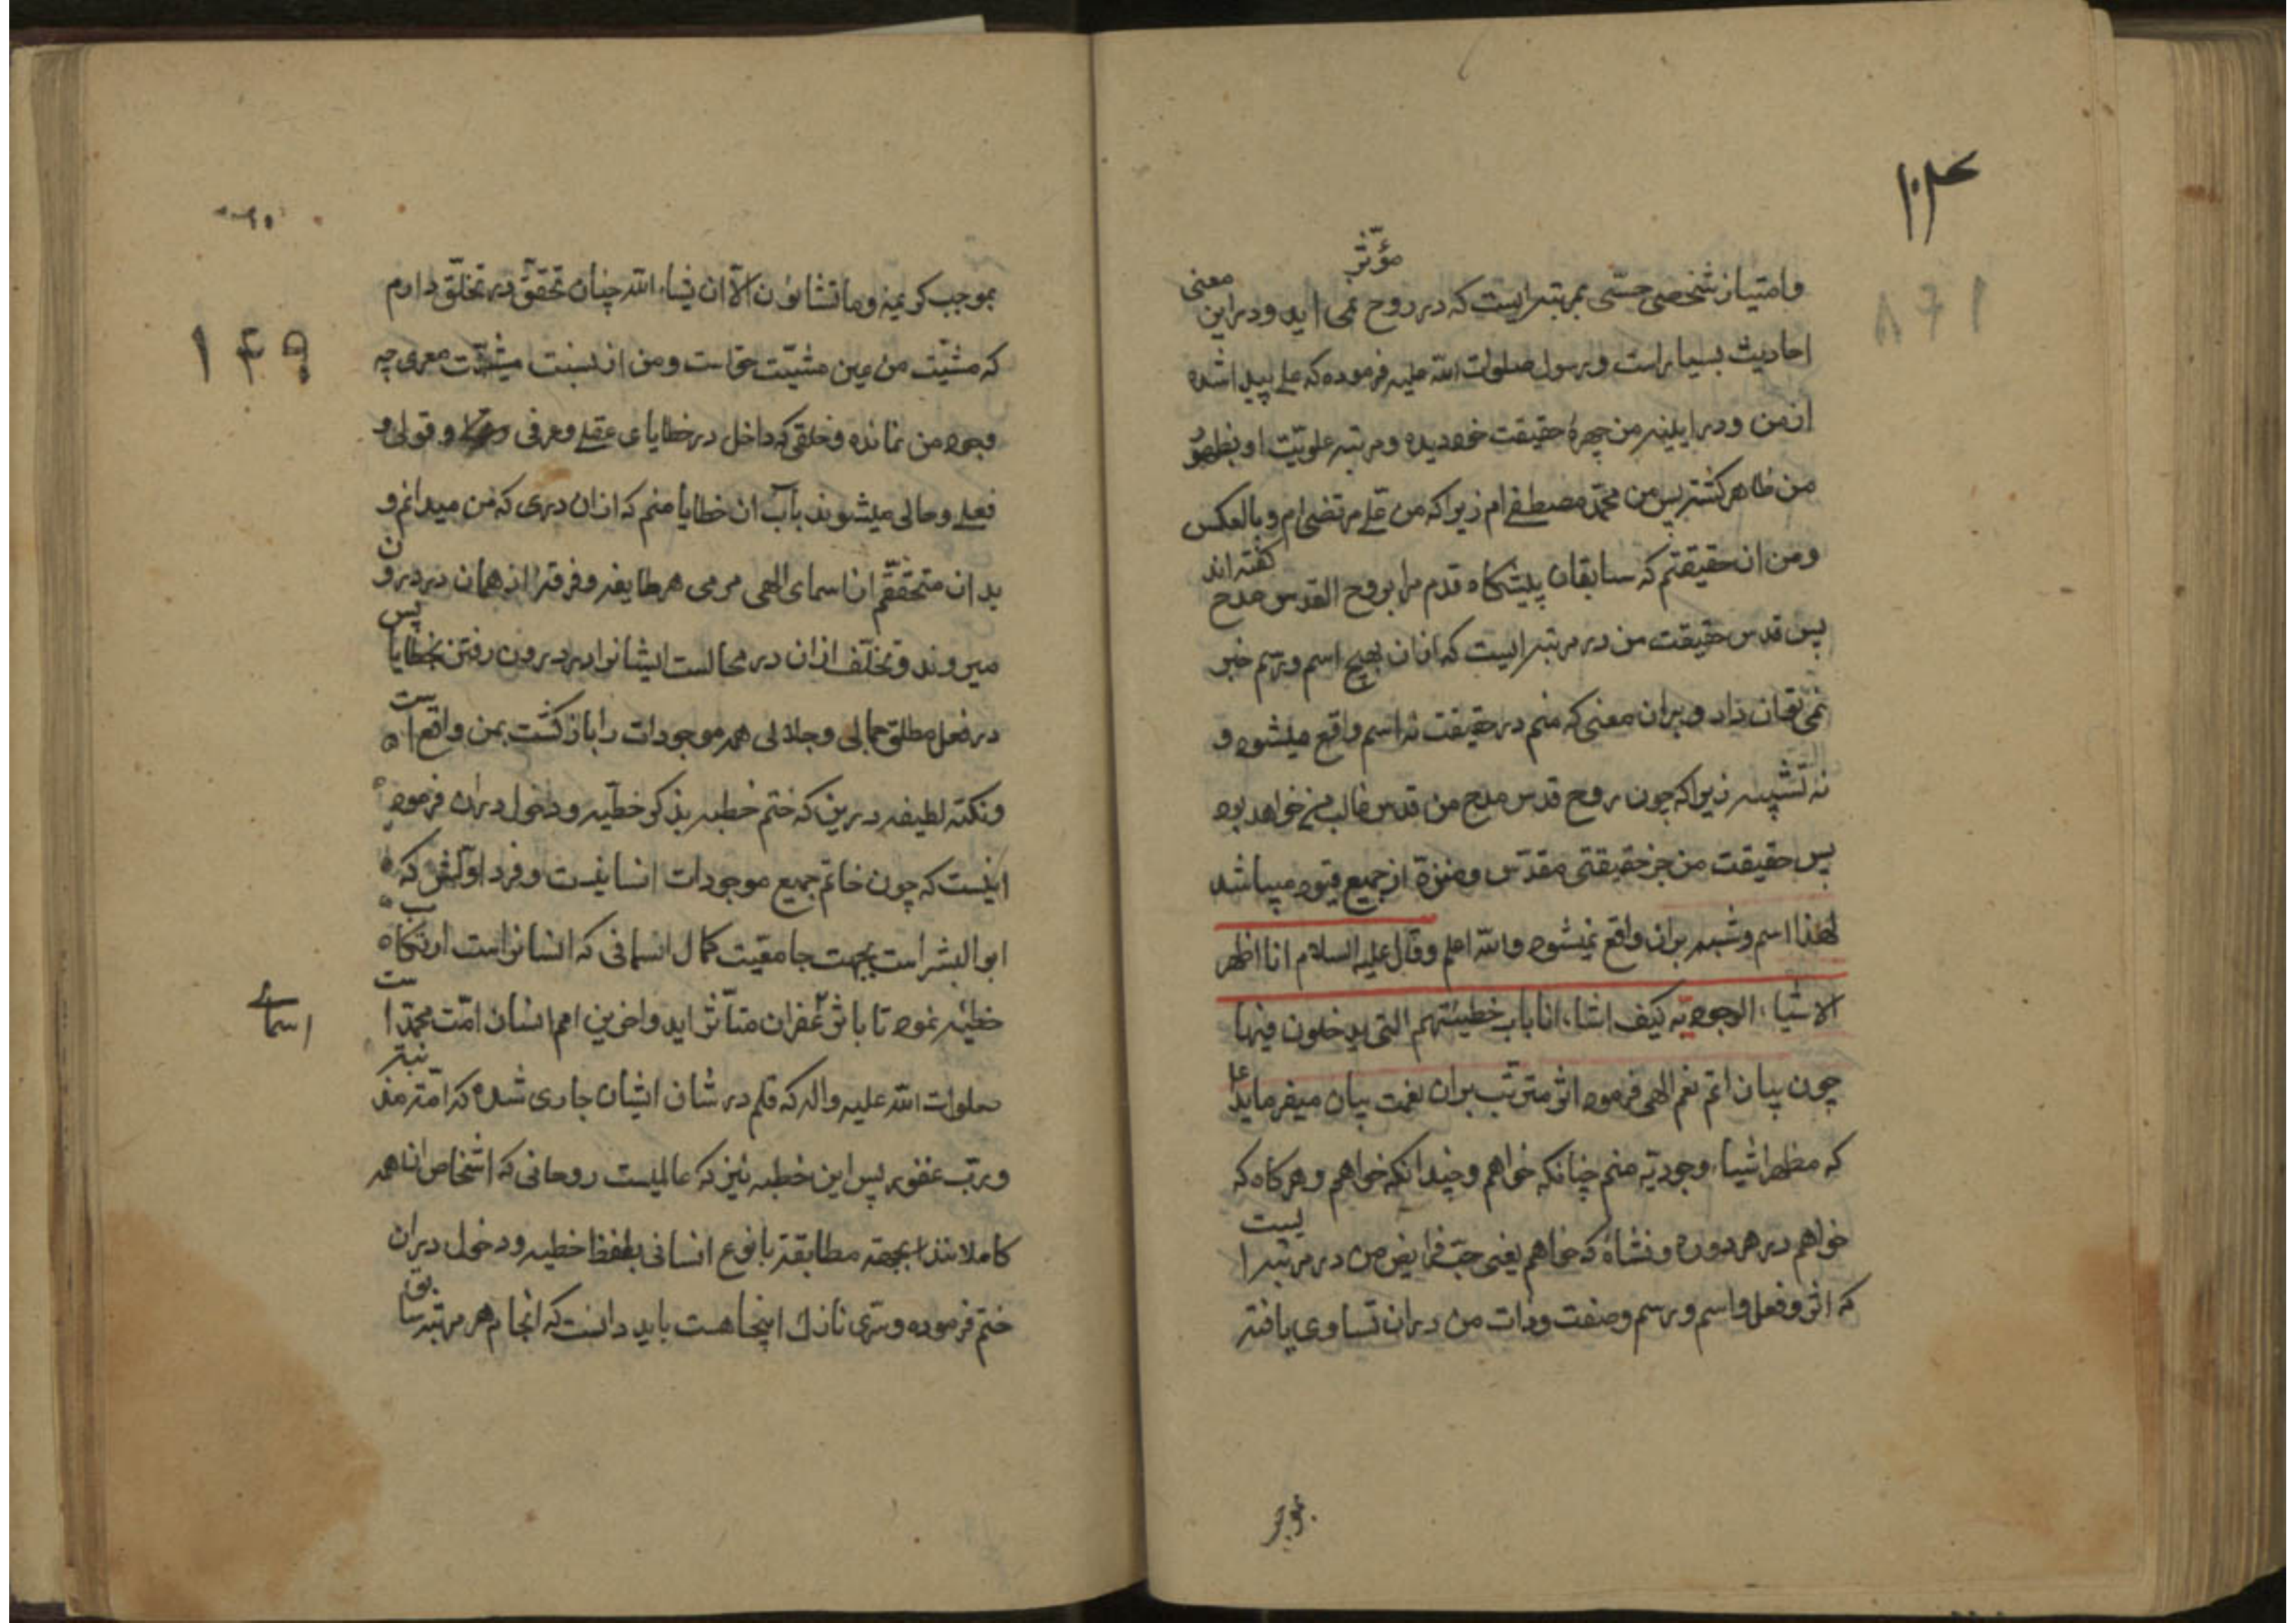 ۱۰۴
۱۴۸
مؤثر
وامتیاز شخصی حسّی بمرتبه ایست که در روح می اید ودراین معنی
احادیث بسیار است ورسول صلوات الله علیه فرموده که علی پیدا شده
از من ودر ایینه من چهرهٔ حقیقت خود دیده ومرتبه علویّت او بظهور
من ظاهر کشته پس من محمّد مصطفی ام زیرا که من علی مرتضی ام وبالعکس
ومن ان حقیقتم که سابقان پیشکاه قدم مرا بروح القدس مدح کفته اند
پس قدس حقیقت من در مرتبه ایست که ازان بهیچ اسم ورسم خبر
نمی توان داد وبران معنی که منم در حقیقت نه اسم واقع میشود و
نه تشبیه زیرا که چون روح قدس مدح من قدس غالب خواهد بود
پس حقیقت من جز حقیقتی مقدّس ومنزّه از جمیع قیود میباشد
لهذا اسم وشبه بران واقع نمیشود والله اعلم وقال علیه السلام انا اظهر
الاشیاء الوجودیّه کیف اشاء انا باب خطیئتهم التی یدخلون فیها
چون بیان اتم نعم الهی فرمود اثر مترتب بران نعمت بیان میفرماید
که مظهر اشیاء وجودیّه منم چنانکه خواهم وچندانکه خواهم وهرکاه که
خواهم در هر دوره ونشاهٔ که خواهم یعنی حبّ فرایض من در مرتبه ایست
که اثر وفعل واسم ورسم وصفت وذات من دران تساوی یافته
بموجب
۱۴۹
بموجب کریمه وما تشاؤن الّا ان یشاء الله چنان تحقّق در تخلّق دارم
که مشیّت من عین مشیّت حق است ومن از نسبت مشیّت معری چه
وجود من نمانده وخلقی که داخل در خطایای عقلی وعرفی وقولی و
فعلی وحالی میشوند باب ان خطایا منم که ازان دری که من میدانم و
بدان متحقّقم از اسمای الهی مربی هر طایفه وفرقه از همان در درون
میروند وتخلّف ازان در محالست ایشانرا در درون رفتن بخطایا پس
در فعل مطلق جمالی وجلالی همه موجودات را بازکشت بمن واقع است
ونکته لطیفه درین که ختم خطبه بذکر خطیّه ودخول دران فرموده
اینست که چون خاتم جمیع موجودات انسانیست وفرد اوّلش که
ابو البشر است بجهت جامعیت کمال انسانی که انسانراست ارتکاب
خطیئه نموده تا باثر غفران متأثر اید واخرین امم انسان امّت محمّد است
صلوات الله علیه واله که قلم در شان ایشان جاری شده که امّة مذنبة
وربّ غفور پس این خطبه نیز که عالمیست روحانی که اشخاص ان همه
کاملانند بجهة مطابقة با نوع انسانی بلفظ خطیه ودخول دران
ختم فرموده وسّری نازک اینجا هست باید دانست که انجام هر مرتبه سابق
اسمای